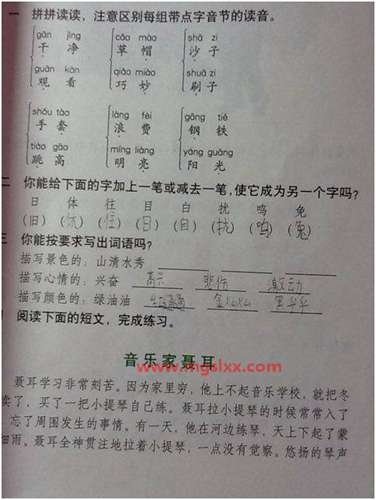 一 拼拼读读，注意区别每组带点字音节的读音。
gān jìng cǎo mào shā zi
干 净 草 帽 沙 子
guān kàn qiǎo miào shuā zi
观 看 巧 妙 刷 子
shǒu tào làng fèi gāng tiě
手 套 浪 费 钢 铁
tiào gāo míng liàng yáng guāng
跳 高 明 亮 阳 光
二 你能给下面的字加上一笔或减去一笔，使它成为另一个字吗？
日 体 往 目 白 扰 鸣 免
(旧) (休) (住) (日) (自) (拢) (鸣) (兔)
三 你能按要求写出词语吗？
描写景色的：山清水秀
描写心情的：兴奋 高兴 悲伤 激动
描写颜色的：绿油油 金灿灿 黑乎乎
阅读下面的短文，完成练习。
音乐家聂耳
www.mgslxx.com
聂耳学习非常刻苦。因为家里穷，他上不起音乐学校，就把冬
卖了，买了一把小提琴自己练。聂耳拉小提琴的时候常常入了
忘了周围发生的事情。有一天，他在河边练琴，天上下起了蒙
细雨。聂耳全神贯注地拉着小提琴，一点没有觉察。悠扬的琴声